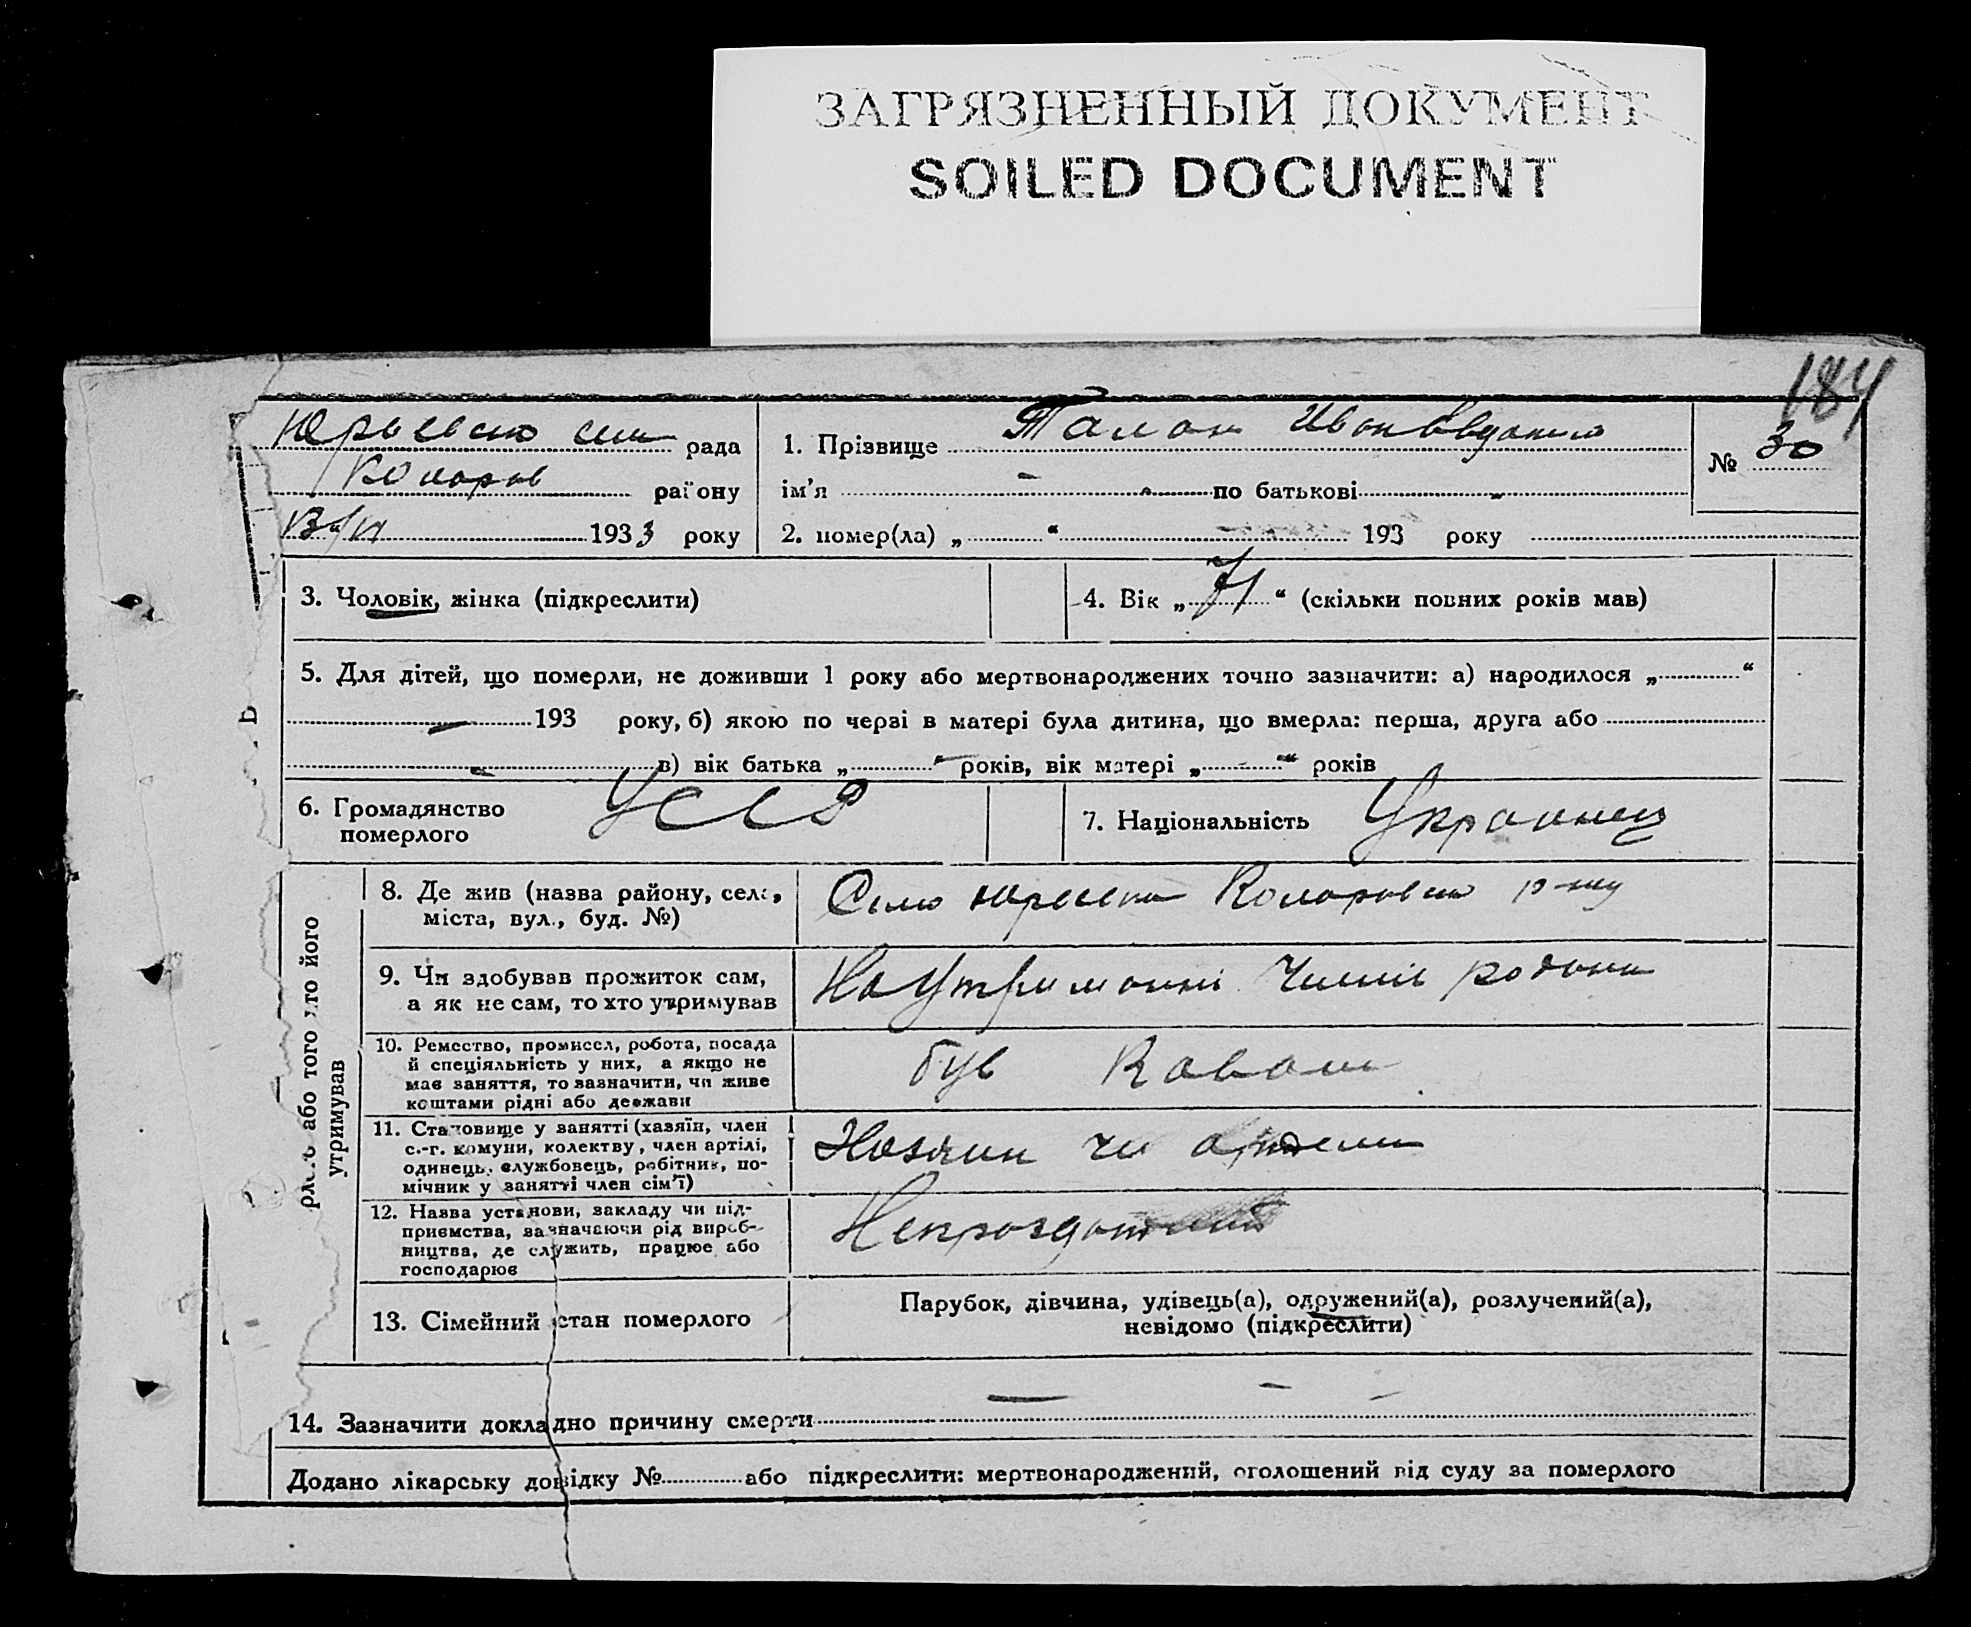 ЗАГРЯЗНЕННЫЙ ДОКУМЕНТ
SOILED DOCUMENT
184
рада
1. Прізвище Талан Иван
№ 30
району
ім'я по батькові
1933 року
2. помер(ла) „ “ 193 року
3. Чоловік, жінка (підкреслити)
4. Вік „71“ (скільки повних років мав)
5. Для дітей, що померли, не доживши 1 року або мертвонароджених точно зазначити: а) народилося „ “
193 року, б) якою по черзі в матері була дитина, що вмерла: перша, друга або
в) вік батька „ “ років, вік матері „ “ років
6. Громадянство
померлого
УССР
7. Національність Украинец
або того хто його
утримував
8. Де жив (назва району, села,
міста, вул., буд. №)
Село
9. Чи здобував прожиток сам,
а як не сам, то хто утримував
На Утриманні Членів родини
10. Ремество, промисел, робота, посада
й спеціяльність у них, а якщо не
має заняття, то зазначити, чи живе
коштами рідні або держави
був
11. Становище у занятті (хазяїн, член
с.-г. комуни, колективу, член артілі,
одинець, службовець, робітник, по-
мічник у занятті член сім'ї)
Хозяин
12. Назва установи, закладу чи під-
приємства, зазначаючи рід вироб-
ництва, де служить, працює або
господарює
13. Сімейний стан померлого
Парубок, дівчина, удівець(а), одружений(а), розлучений(а),
невідомо (підкреслити)
14. Зазначити докладно причину смерти
Додано лікарську довідку № або підкреслити: мертвонароджений, оголошений від суду за померлого